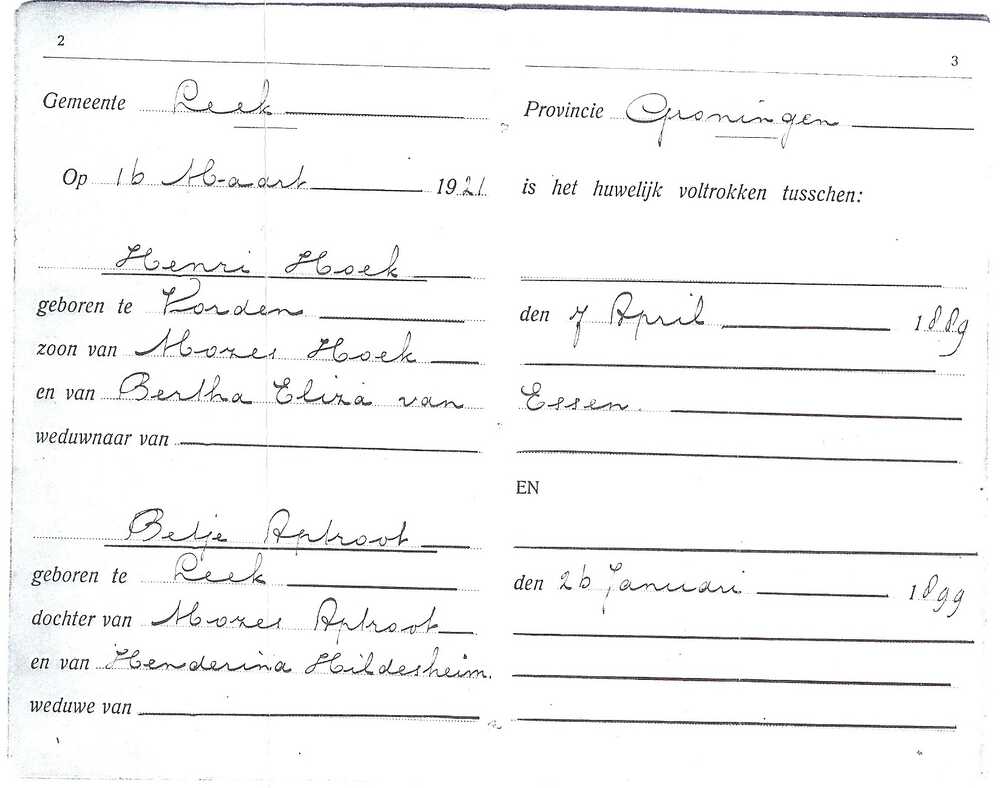 2
3
Gemeente Leek Provincie Groningen
Op 16 Maart 1921 is het huwelijk voltrokken tusschen:
Henri Hoek
geboren te Vorden den 7 April 1889
zoon van Mozes Hoek
en van Bertha Eliza van Essen.
weduwnaar van
EN
Betje Aptroot
geboren te Leek den 26 Januari 1899
dochter van Mozes Aptroot
en van Henderina Hildesheim.
weduwe van